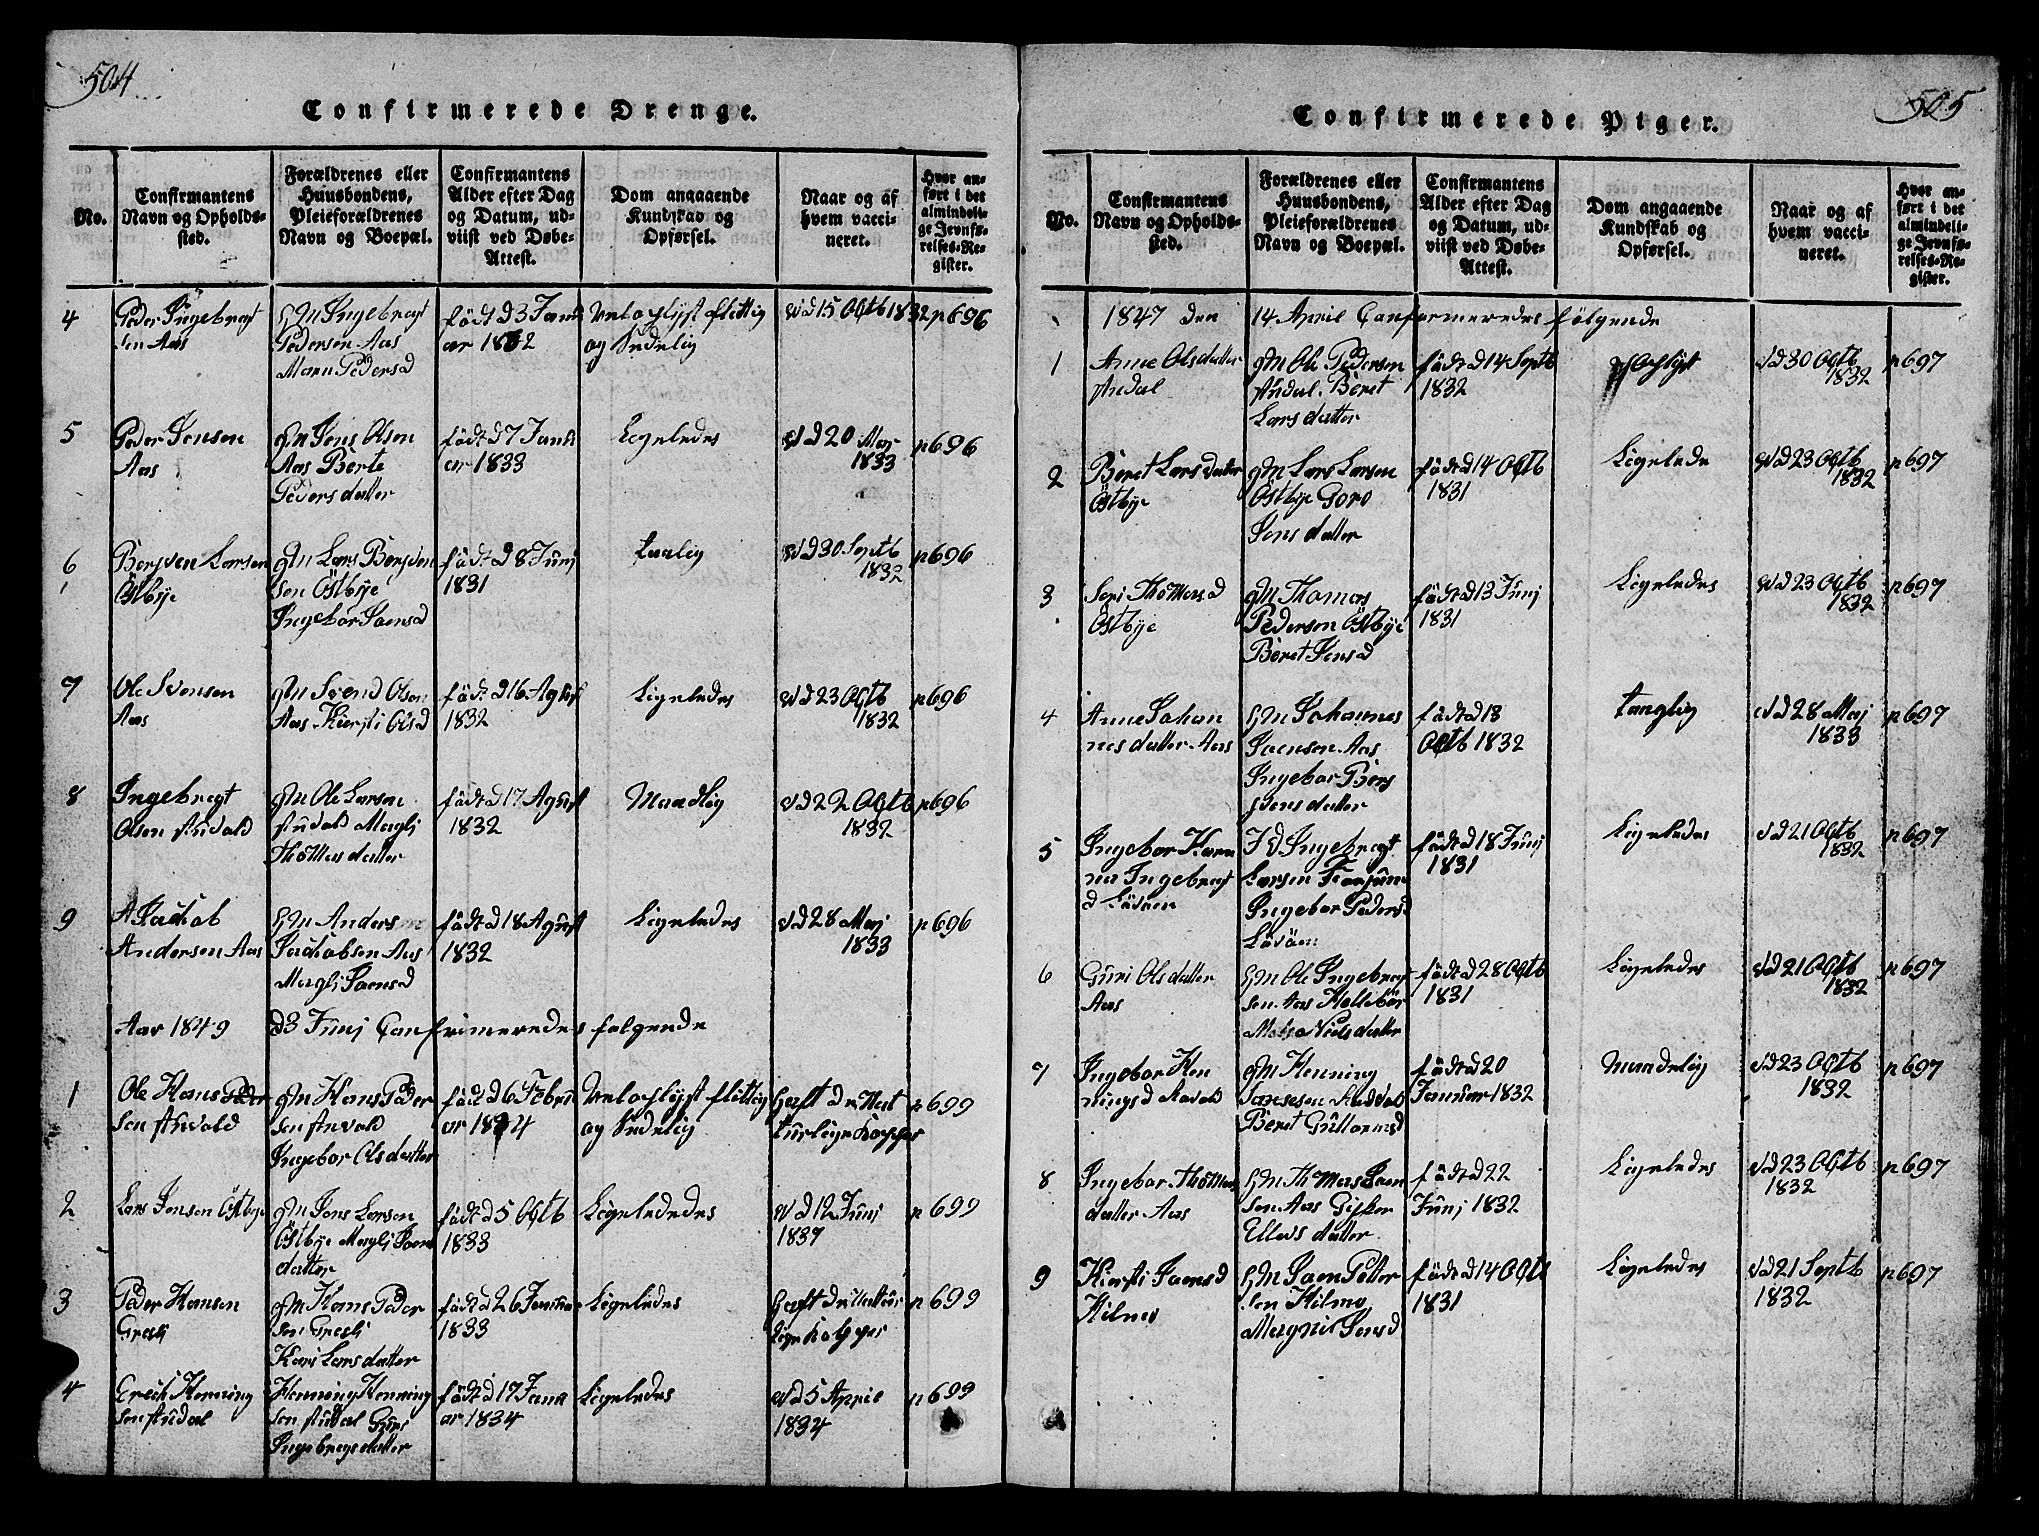 504
Confirmerede Drenge.
No.
Confirmantens
Navn og Opholds-
sted.
Forældrenes eller
Huusbondens,
Pleieforældrenes
Navn og Boepæl.
Confirmantens
Alder efter Dag
og Datum, ud-
viist ved Døbe-
Attest.
Dom angaaende
Kundskab og
Opførsel.
Naar og af
hvem vacci-
neret.
Hvor an-
ført i det
almindeli-
ge Jevnfø-
relses-Re-
gister.
4
Peder Ingebregt
sen Aas
GM Ingebregt
Pedersen Aas
Maru Pedersd
født d 3 Janu
ar 1832
Veloplyst flittig
og Sedelig
vd 15 Octb 1832
p 696
5
Peder Jensen
Aas
GM Jens Olsen
Aas Berte
Peders datter
født d 7 Janu
ar 1833
Ligeledes
vd 20 Maj
1833
p 696
6
Larsen
Östbye
GM Lars
sen Östbye
Ingebor Joensd
født d 8 Junj
1831
taalig
vd 30 Septb
1832
p 696
7
Ole Svensen
Aas
GM Svend Olsen
Aas Kiersti Olsd
født d 16 Agust
1832
Ligeledes
vd 23 Octb
1832
p 696
8
Ingebregt
Olsen
GM Ole Larsen
Magli
Thomas datter
født d 17 Agust
1832
Maadlig
vd 22 Octb
1832
p 696
9
Andersen Aas
GM Anders
Jachobsen Aas
Magli Joensd
født d 18 Agust
1832
Ligeledes
vd 28 Maj
1833
p 696
Aar 1849 d 3 Junj Confrimeredes følgende
1
Ole Hans Peder
sen
GM Hans Peder
sen
Ingebor Olsdatter
født d 6 Febru
ar 1834
Veloplyst flittig
og Sedelig
haft de Nat
turlige Kopper
p 699
2
Lars Jensen Östbye
GM Jens Larsen
Östbye Magli Joens
datter
født d 5 Octb
1833
Ligelededes
vd 12 Junj
1837
p 699
3
Peder Hansen
Gresli
GM Hans Peder
sen Gresli
Kari Larsdatter
født d 26 Januar
1833
Ligeledes
haft de Nattur
lige Kopper
p 699
4
Erich Henning
sen
Henning Henning
sen
Ingebregsdatter
født d 17 Janu
ar 1834
Ligeledes
vd 5 April
1834
p 699
505
Confirmerede Piger.
No.
Confirmantens
Navn og Opholds-
sted.
Forældrenes eller
Huusbondens,
Pleieforældrenes
Navn og Boepæl.
Confirmantens
Alder efter Dag
og Datum, ud-
viist ved Døbe-
Attest.
Dom angaaende
Kundskab og
Opførsel.
Naar og af
hvem vacci-
neret.
Hvor an-
ført i det
almindeli-
ge Jevnfø-
relses-Re-
gister.
1847 den 14 April Confirmeredes følgende
1
Anne Olsdatter
GM Ole Pedersen
Beret
Lars datter
født d 14 Septb
1832
vd 30 Octb
1832
p 697
2
Beret Larsdatter
Östbye
GM Lars Larsen
Östbye Goro
Jens datter
født d 14 Octb
1831
Ligelede
vd 23 Octb
1832
p 697
3
Seri Thomasd
Östbye
GM Thomas
Pedersen Östbye
Beret Jensd
født d 13 Junj
1831
Ligeledes
vd 23 Octb
1832
p 697
4
Anne Johan
nes datter Aas
GM Johannes
Joensen Aas
Ingebor Bers
vens datter
født d 13
Octb 1832
vd 28 Maj
1833
p 697
5
Ingebor
Ingebregt
d Lövöen
F d Ingebregt
Larsen
Ingebor Pedersd
Lövöen
født d 18 Junj
1831
Ligeledes
vd 21 Octb
1832
p 697
6
Guri Olsdatter
Aas
GM Ole Ingebregt
sen Aas
født d 28 Octb
1831
Ligeledes
vd 21 Octb
1832
p 697
7
Ingebor Hen
ningsd
GM Henning
Jensesen
Beret Guttormsd
født d 20
Januar 1832
Maadelig
vd 23 Octb
1832
p 697
8
Ingebor Thomas
datter Aas
GM Thomas Joen
sen Aas
Ellevs datter
født d 22
Junj 1832
Ligeledes
vd 23 Octb
1832
p 697
9
Kiersti Joensd
Kilmo
GM Joen Petter
sen Kilmo
Magnil Jensd
født d 14 Octb
1831
Ligeledes
vd 21 Septb
1832
p 697